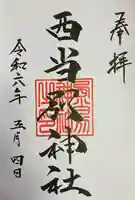 奉拝
西当別神社
令和六年 五月四日